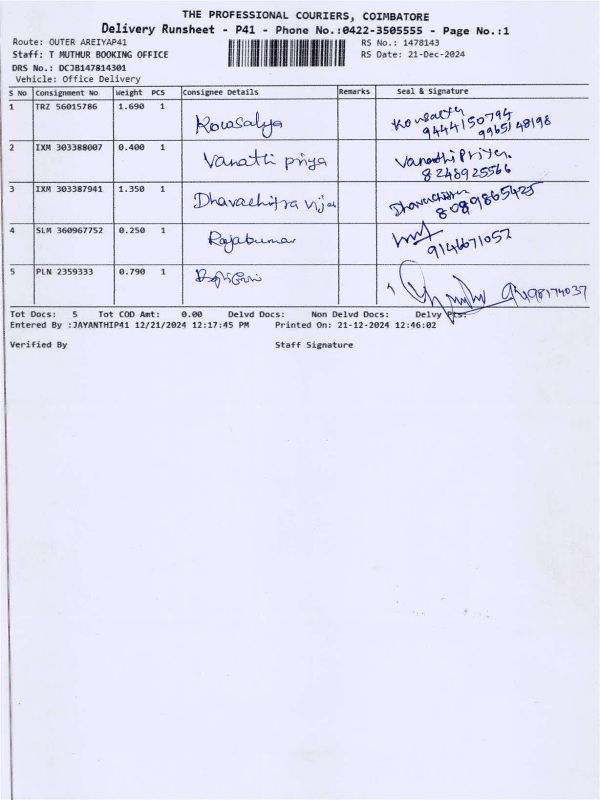 THE PROFESSIONAL COURIERS, COIMBATORE
Delivery Runsheet - P41 - Phone No.:0422-3505555 - Page No.:1
Route: OUTER AREIYAP41 RS No.: 1478143
Staff: T MUTHUR BOOKING OFFICE RS Date: 21-Dec-2024
DRS No.: DCJB147814301
Vehicle: Office Delivery
S No Consignment No Weight PCS Consignee Details Remarks Seal & Signature
1 TRZ 56015786 1.690 1 Kowsalya Kowsalya
9444150794
9965148198
2 IXM 303388007 0.400 1 Vanathi priya Vanathi Priya.
8248925566
3 IXM 303387941 1.350 1 Dhavachitra
8089865425
4 SLM 360967752 0.250 1 Rajakumar
9146671057
5 PLN 2359333 0.790 1
Tot Docs: 5 Tot COD Amt: 0.00 Delvd Docs: Non Delvd Docs: Delvy Pts:
Entered By :JAYANTHIP41 12/21/2024 12:17:45 PM Printed On: 21-12-2024 12:46:02
Verified By Staff Signature